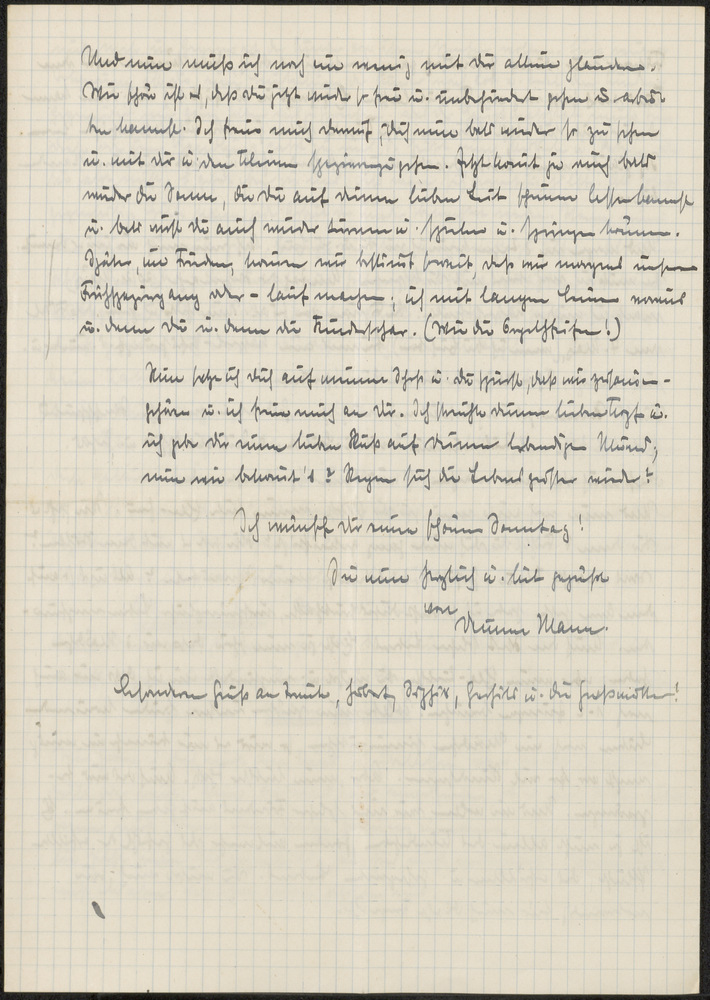 Und nun muß ich noch ein wenig mit dir allein plaudern.
Wie schön ist es, daß du jetzt wieder so frei u. unbehindert gehen u. arbei-
ten kannst. Ich freue mich darauf, dich nun bald wieder so zu sehen
u. mit dir u. den Kleinen spazierenzugehen. Jetzt kommt ja auch bald
wieder die Sonne, die du auf deinen lieben Leib scheinen lassen kannst
u. bald wirst du auch wieder turnen u. spielen u. springen können.
Später, im Frieden, kommen wir bestimmt soweit, daß wir morgens unsern
Frühspaziergang oder - lauf machen; ich mit langen Beinen voraus
u. dann du u. dann die Kinderschar. (Wie die Orgelpfeifen!)
Nun setze ich dich auf meinen Schoß u. du spürst, daß wir zusammen-
gehören u. ich freue mich an dir. Ich streichle deinen lieben Kopf u.
ich gebe dir einen lieben Kuß auf deinen lebendigen Mund;
nun wie bekommt's? Regen sich die Lebensgeister wieder?
Ich wünsche dir einen schönen Sonntag!
Sei nun herzlich u. lieb gegrüßt
von
Deinem Mann.
Besonderen Gruß an, u. die Großmutter!